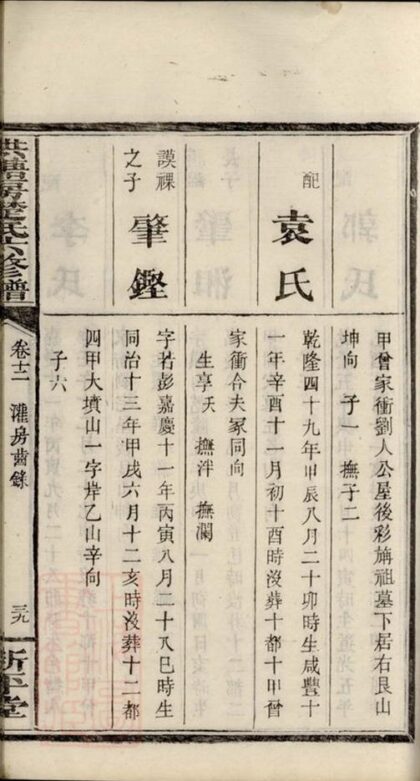 甲曾家衝劉人公屋後彩旃祖墓下居右艮山
坤向 子一 撫子二
配
袁氏
乾隆四十九年甲辰八月二十卯時生咸豐十
一年辛酉十一月初十酉時沒葬十都十甲曾
家衝合夫家同向
生享夭 撫泮 撫瀾
謨祼
之子
肇鏗
字若彭嘉慶十一年丙寅八月二十八巳時生
同治十三年甲戌六月十二亥時沒葬十二都
四甲大墳山一字岸乙山辛向
子六
氏六修譜
卷十二 灌房齒錄
三九
堂